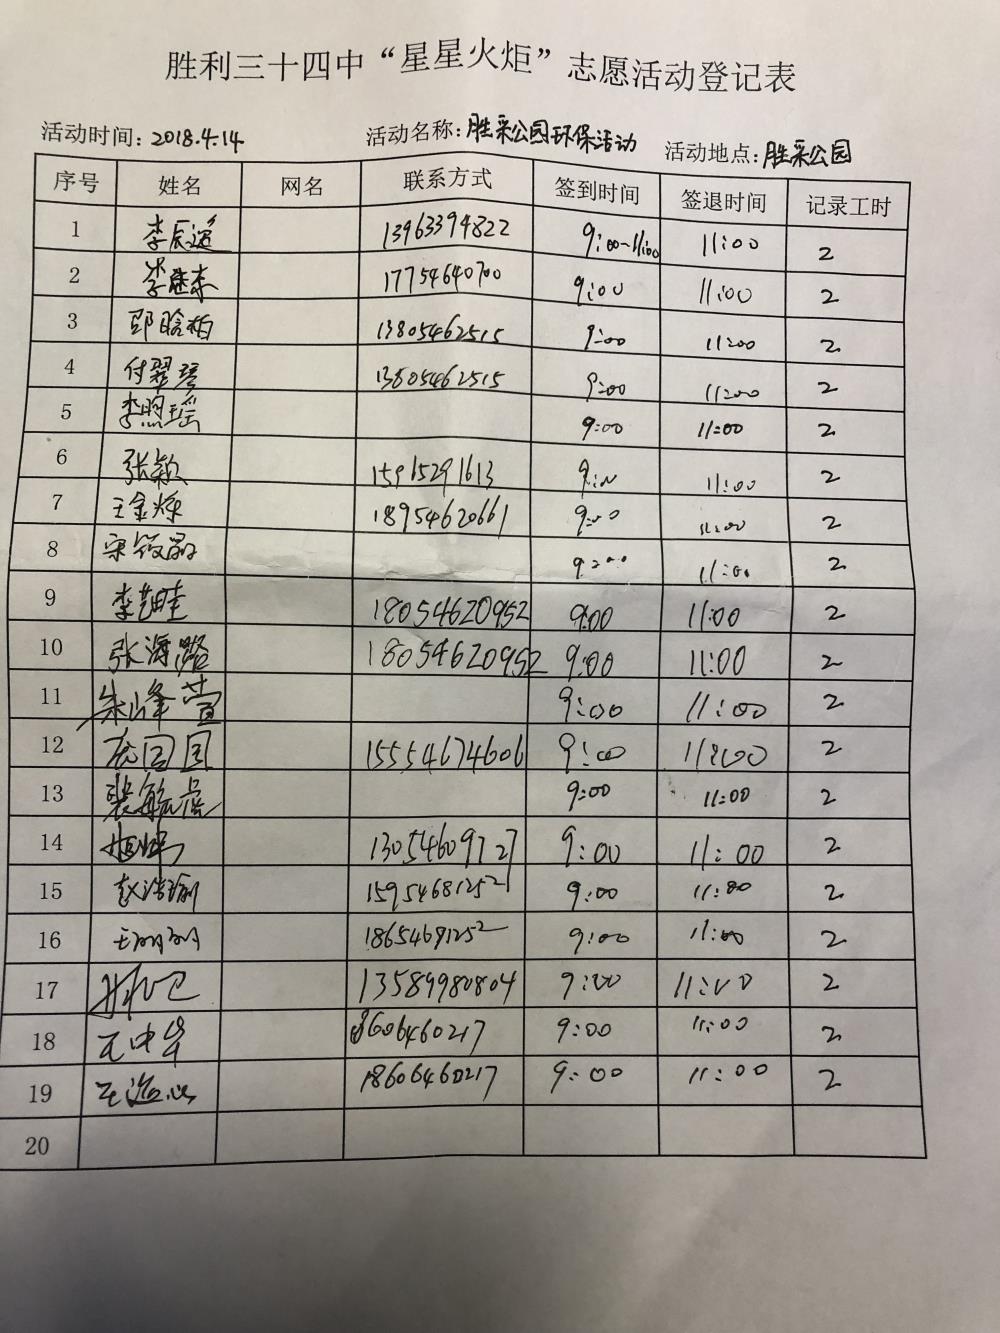 胜利三十四中“星星火炬”志愿活动登记表
活动时间: 2018.4.14 活动名称: 胜采公园环保活动 活动地点: 胜采公园
序号 姓名 网名 联系方式 签到时间 签退时间 记录工时
1 李辰逸 13963394822 9:00-11:00 11:00 2
2 17754640700 9:00 11:00 2
3 邵晗柏 13805462515 9:00 11:00 2
4 付翠琴 13805462515 9:00 11:00 2
5 李照瑶 9:00 11:00 2
6 张颖 15915291613 9:00 11:00 2
7 王金烁 18954620661 9:00 11:00 2
8 9:00 11:00 2
9 18054620952 9:00 11:00 2
10 张海璐 18054620952 9:00 11:00 2
11 朱峰萱 9:00 11:00 2
12 15554674606 9:00 11:00 2
13 裴毓 9:00 11:00 2
14 13054609727 9:00 11:00 2
15 赵浩瑜 15954681252 9:00 11:00 2
16 王丽丽 18654681252 9:00 11:00 2
17 13589980804 9:00 11:00 2
18 王中华 18606460217 9:00 11:00 2
19 18606460217 9:00 11:00 2
20